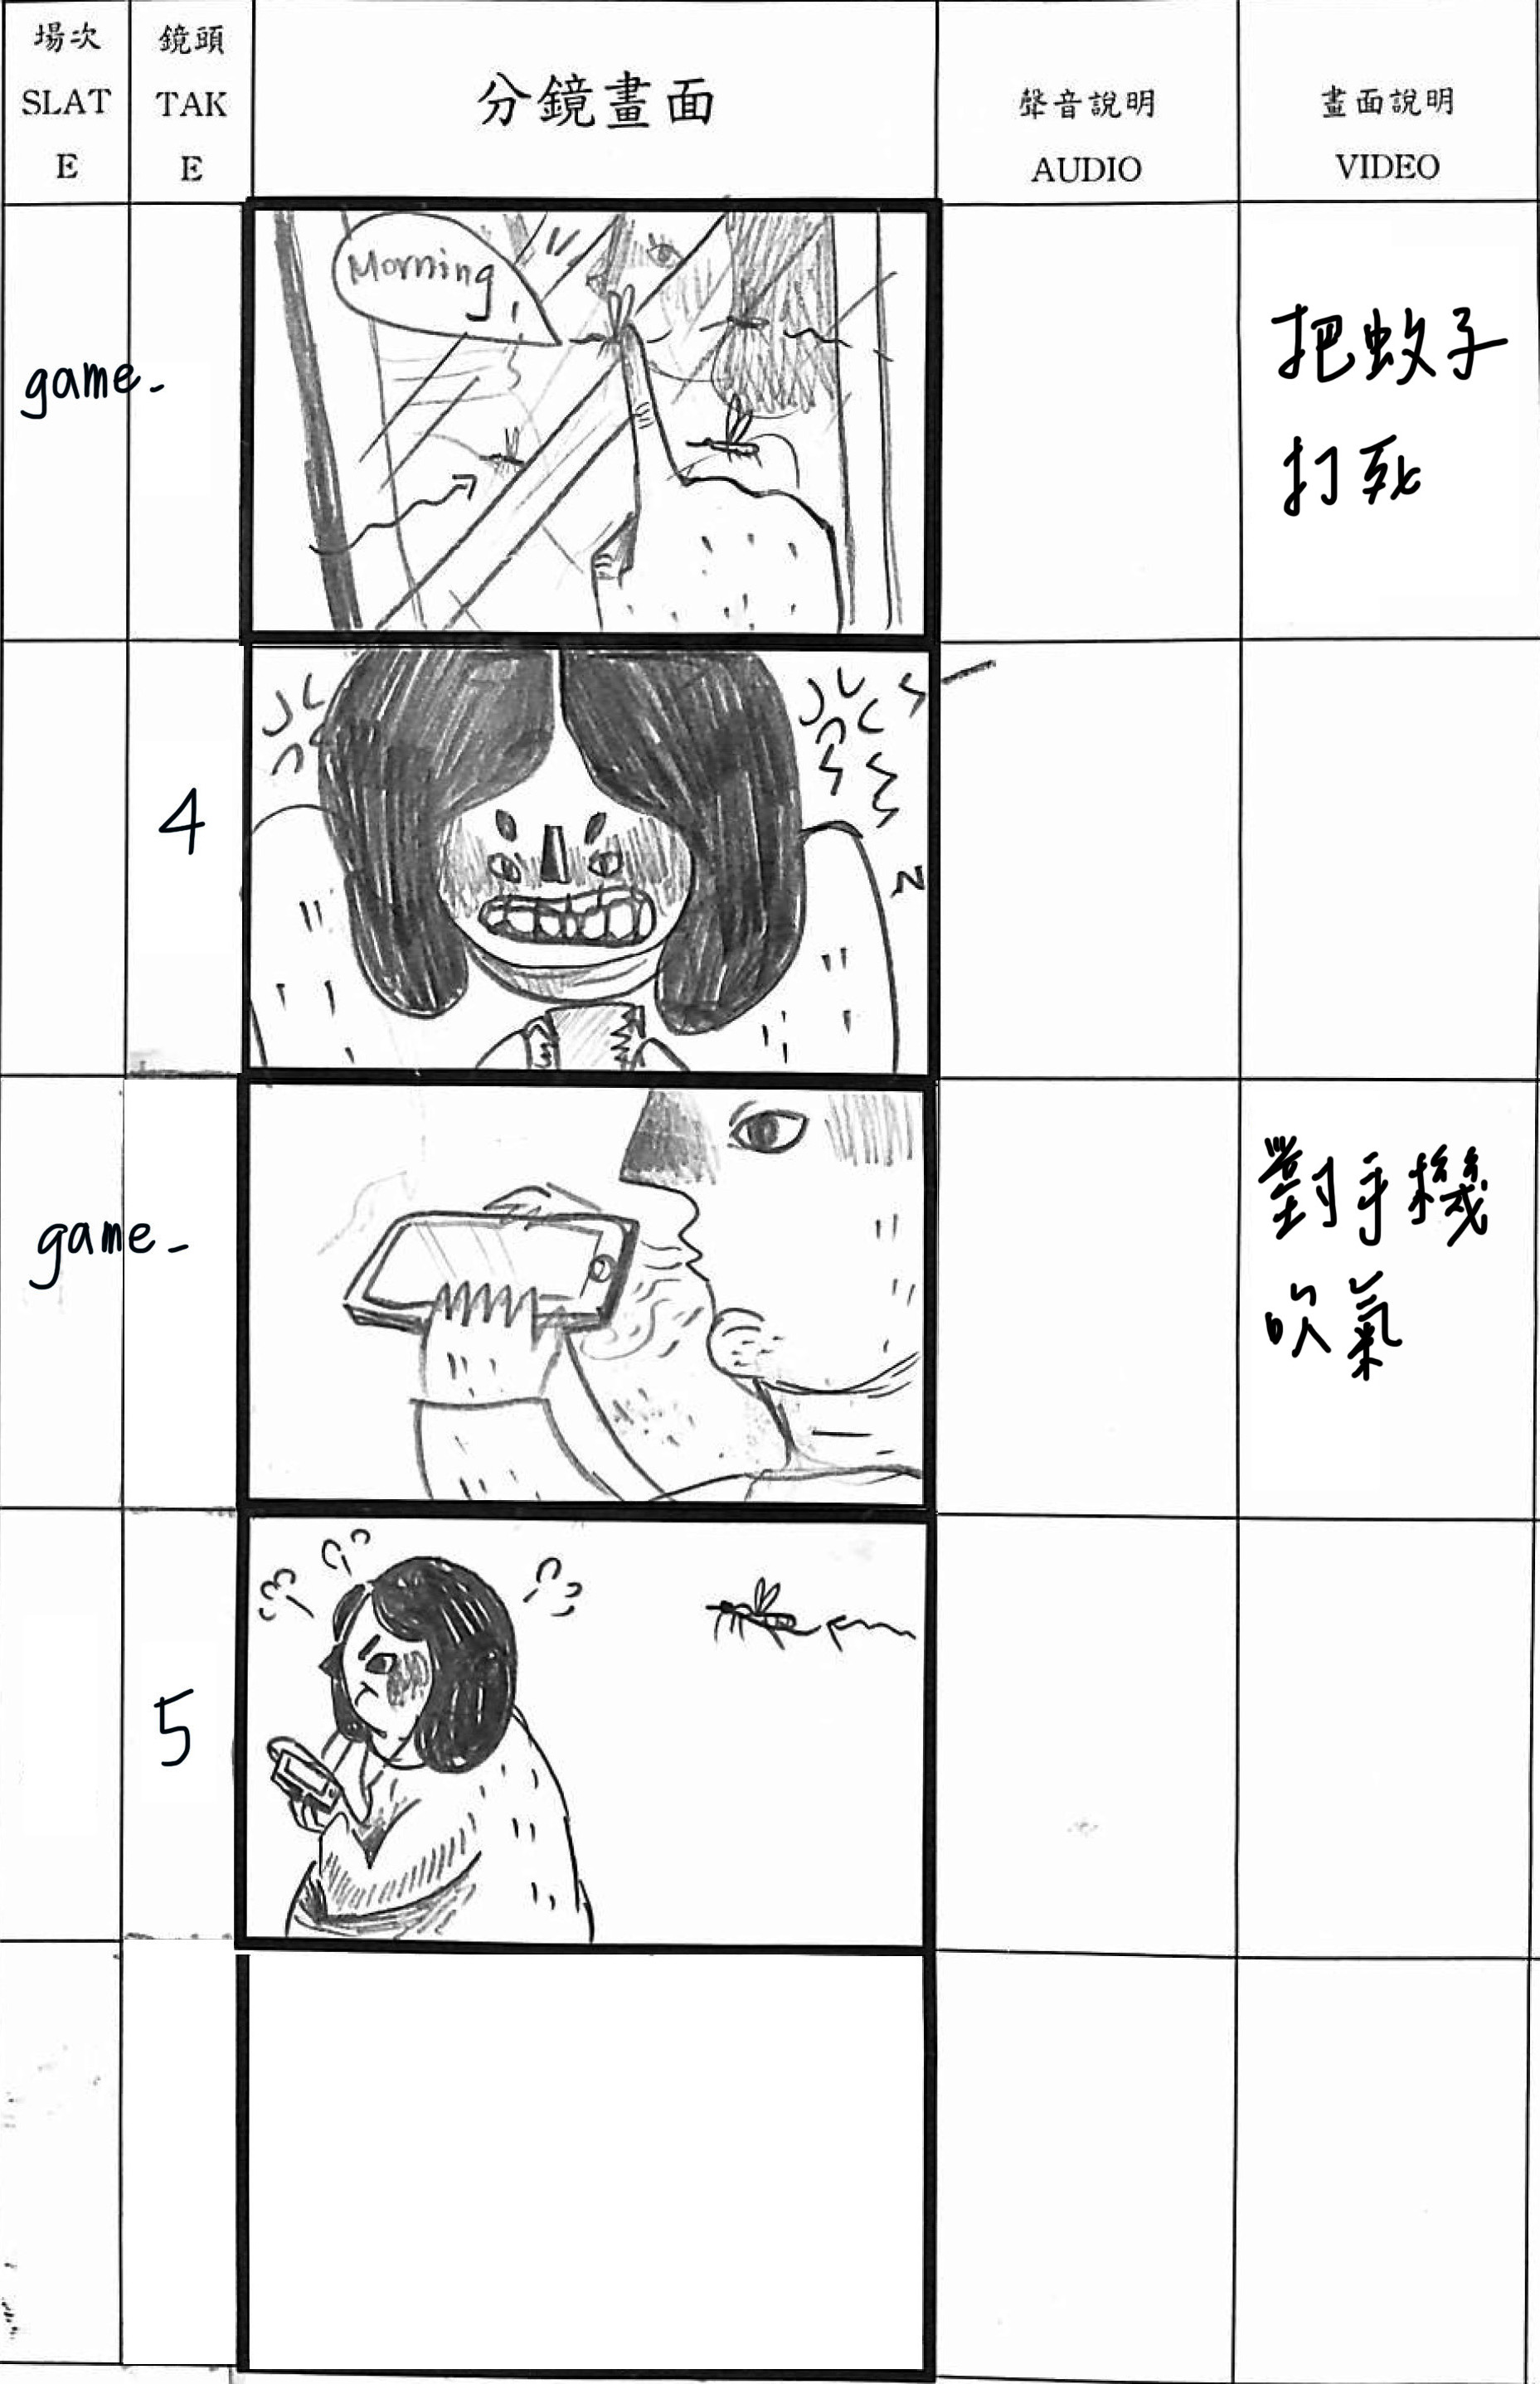 場次
SLAT
E
鏡頭
TAK
E
分鏡畫面
聲音說明
AUDIO
畫面說明
VIDEO
game-
Morning
把蚊子
打死
4
game-
對手機
吹氣
5